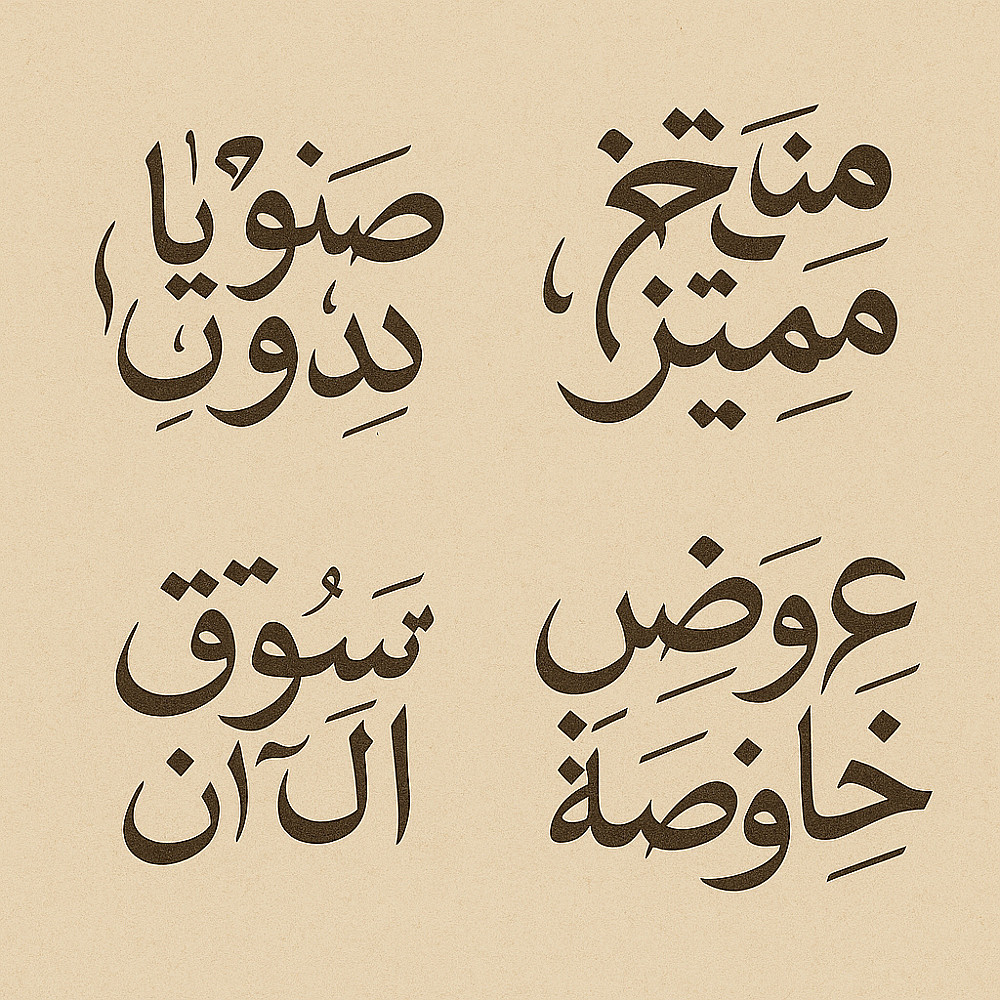 منَتخ
مَمِيتز
صَنوْيٰا
بدِون
عِوَضِ
خِاوصَة
تَسُوق
الَآن